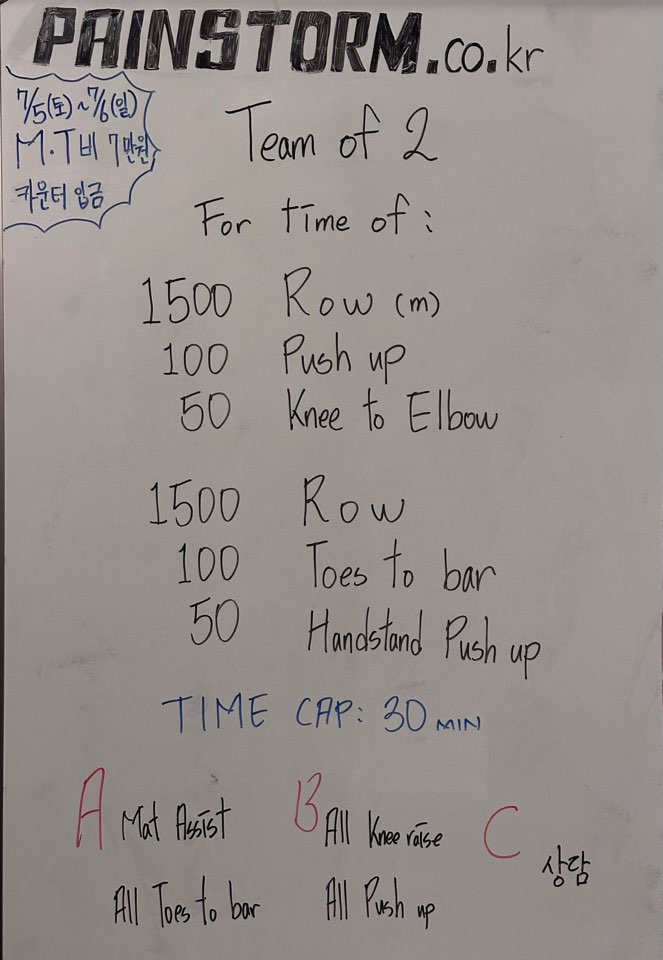 PAINSTORM.co.kr
7/5(토)~7/6(일)
M.T비 7만원
카운터 입금
Team of 2
For time of :
1500 Row (m)
100 Push up
50 Knee to Elbow
1500 Row
100 Toes to bar
50 Handstand Push up
TIME CAP: 30 MIN
A Mat Assist
All Toes to bar
B All Knee raise
All Push up
C 상담